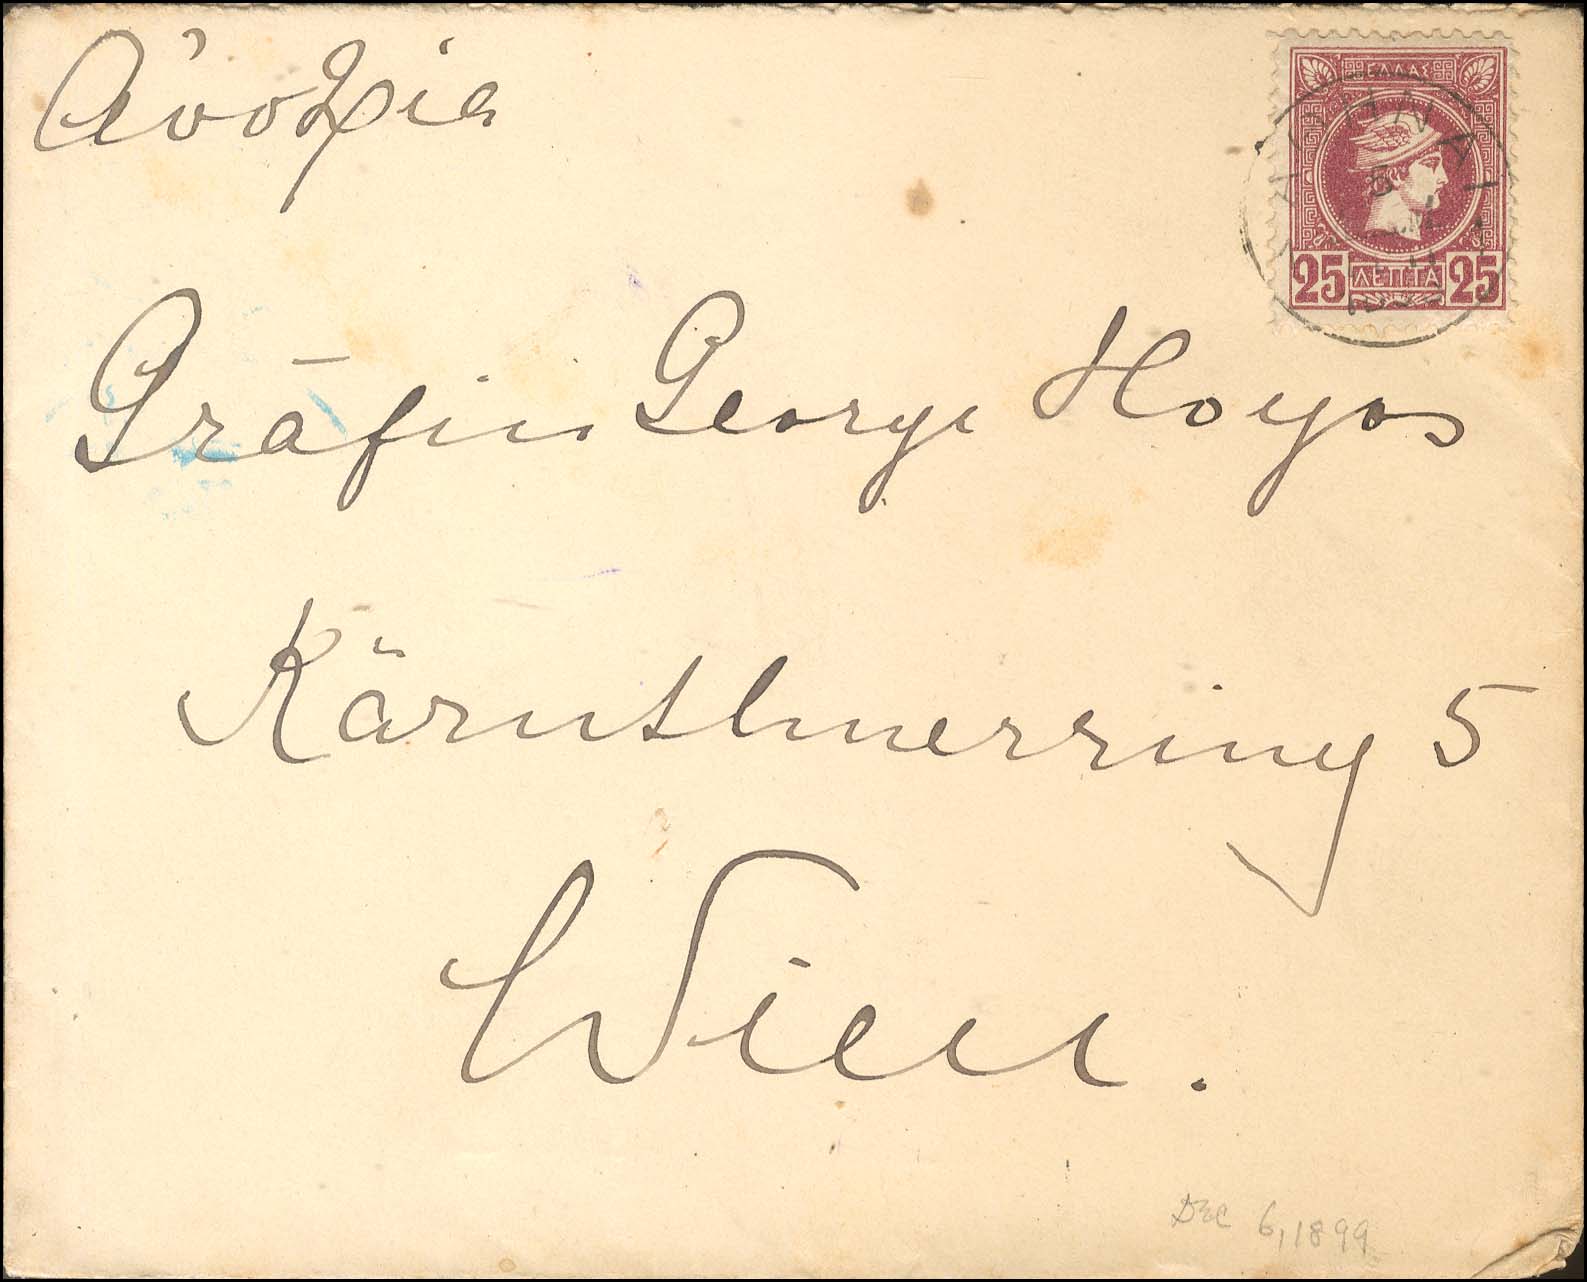 Αὐστρία
ΕΛΛΑΣ
ΑΘΗΝΑΙ
5
25 ΛΕΠΤΑ 25
Gräfin George Hoyos
Kärnthnerring 5
Wien.
Dec 6, 1899